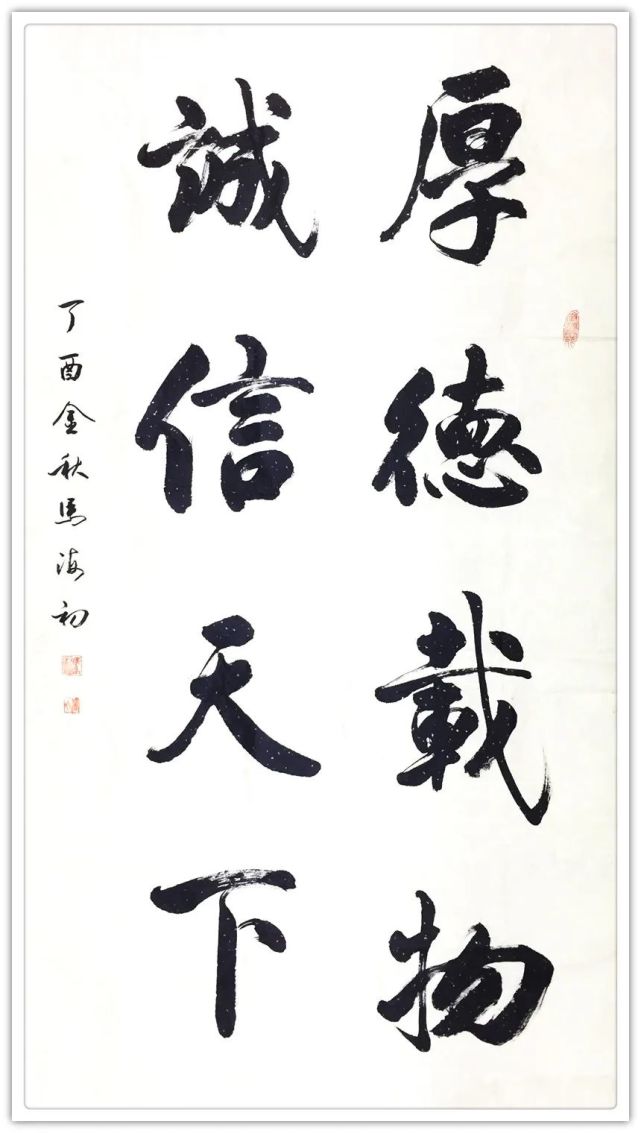 厚德載物
誠信天下
丁酉金秋馬海初